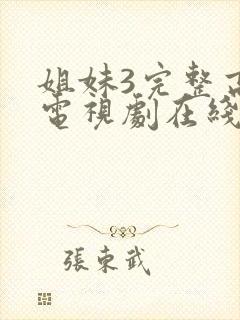 姐妹3完整高
電視劇在綫
張東武